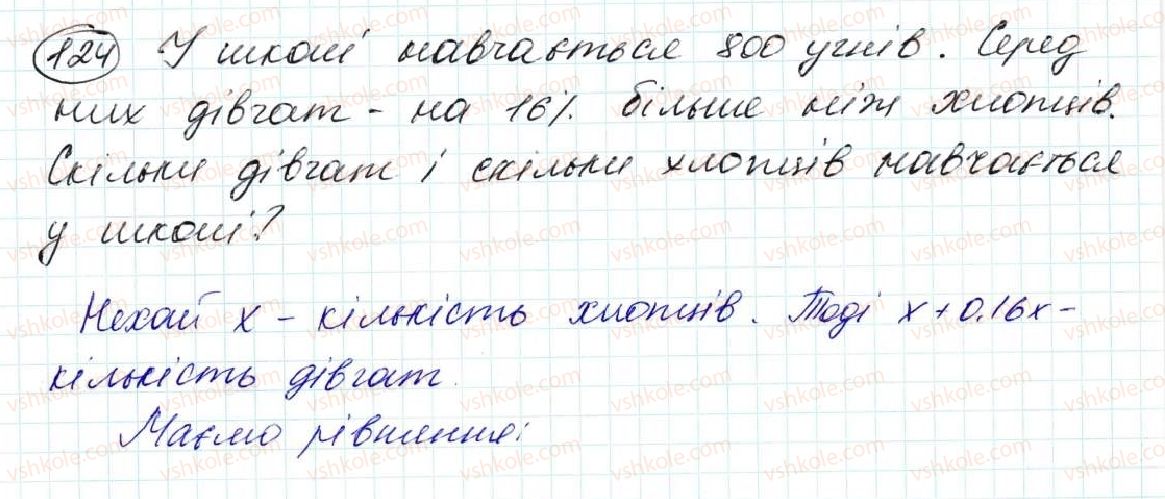 124 У школі навчається 800 учнів. Серед
них дівчат - на 16% більше ніж хлопців.
Скільки дівчат і скільки хлопців навчається
у школі?
Нехай x - кількість хлопців. Тоді x + 0,16x -
кількість дівчат.
Маємо рівняння: